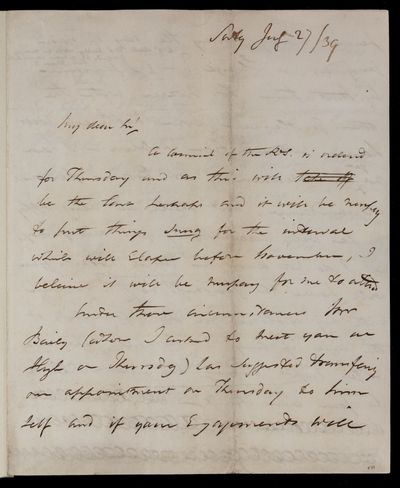 July 27/39
My dear Sir,
A Council of the R.S. is ordered
for Thursday and as this will take up
be the last perhaps and it will be necessary
to put things snug for the interval
which will elapse before November, I
believe it will be necessary for me to attend
Under these circumstances Mr
Baily (whom I asked to meet you at
on Thursday) has suggested transferring
our appointment on Thursday to him
self and if your Engagements will